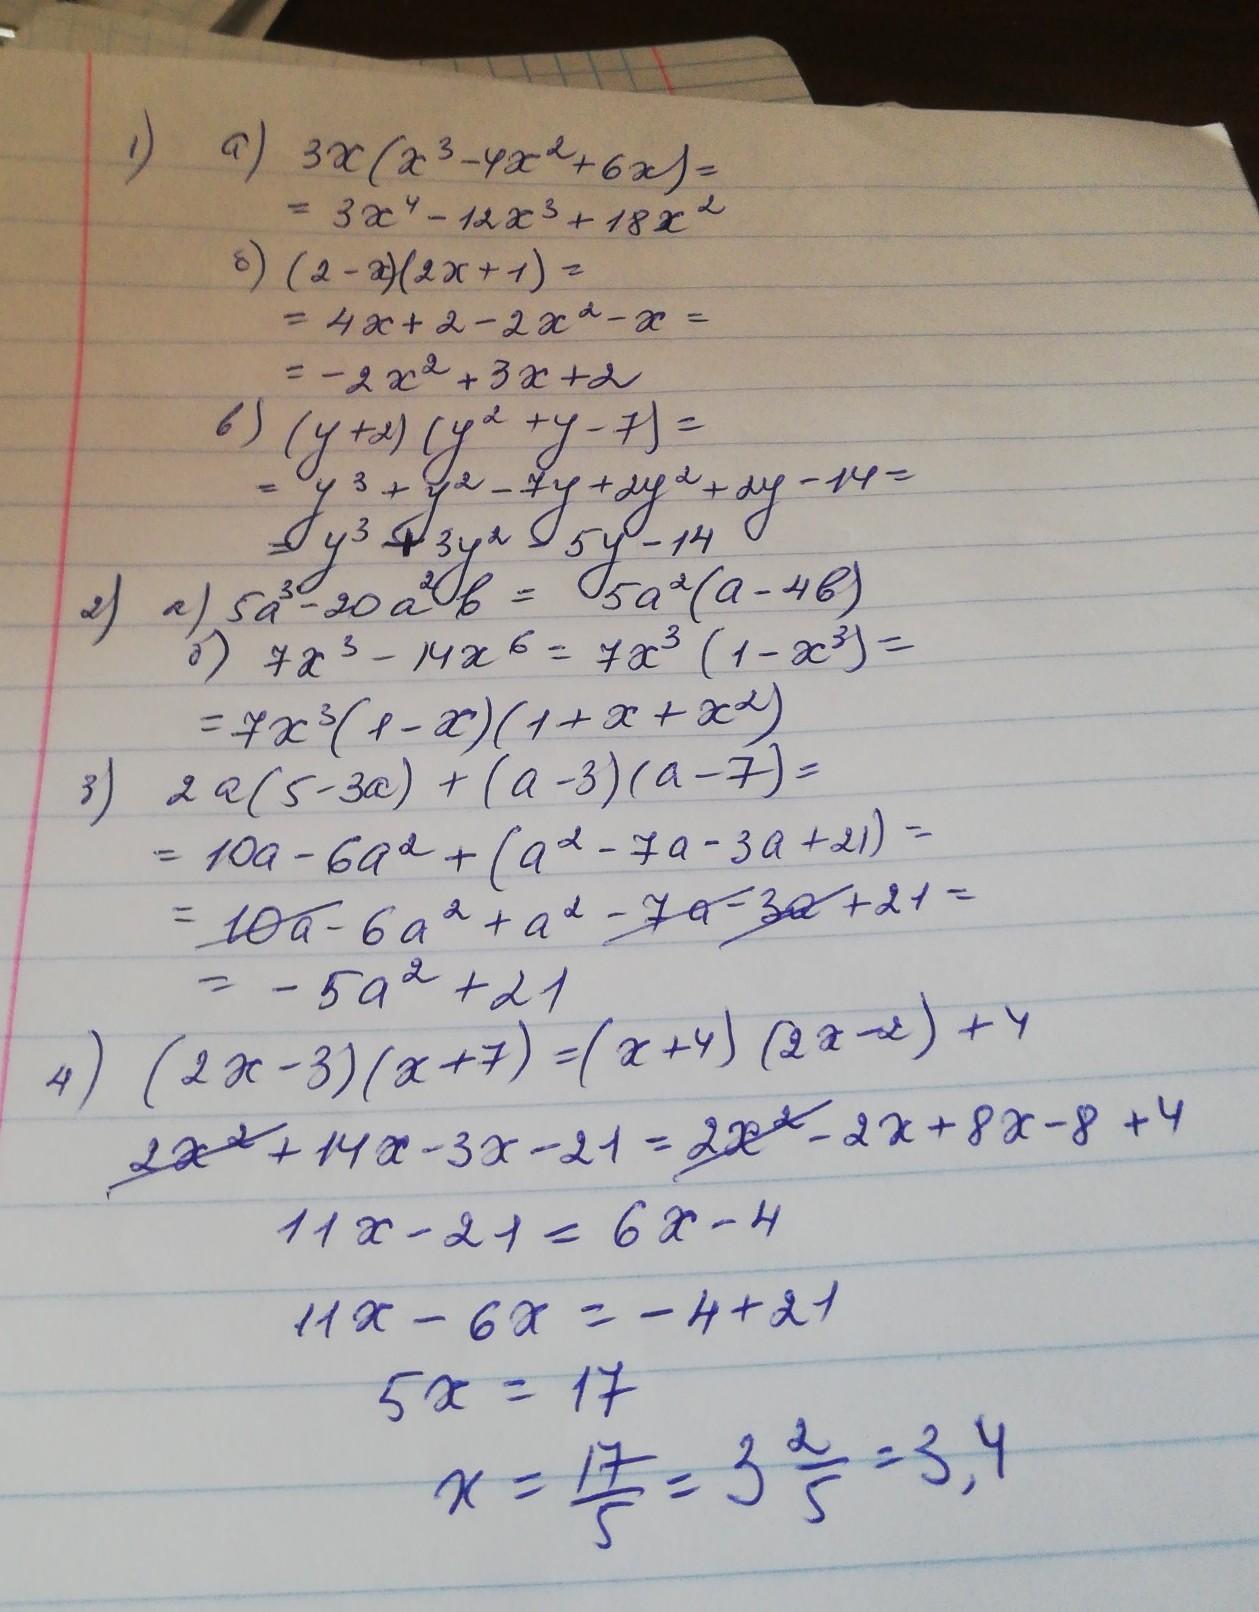 1) а) 3x(x³-4x²+6x)=
= 3x⁴-12x³+18x²
б) (2-x)(2x+1)=
= 4x+2-2x²-x=
= -2x²+3x+2
в) (y+2)(y²+y-7)=
= y³+y²-7y+2y²+2y-14=
= y³+3y²-5y-14
2) а) 5a³-20a²b = 5a²(a-4b)
б) 7x³-14x⁶=7x³(1-x³)=
=7x³(1-x)(1+x+x²)
3) 2a(5-3a)+(a-3)(a-7)=
= 10a-6a²+(a²-7a-3a+21)=
= 10a-6a²+a²-7a-3a+21=
= -5a²+21
4) (2x-3)(x+7)=(x+4)(2x-2)+4
2x²+14x-3x-21=2x²-2x+8x-8+4
11x-21=6x-4
11x-6x=-4+21
5x=17
x=17/5=3 2/5=3,4